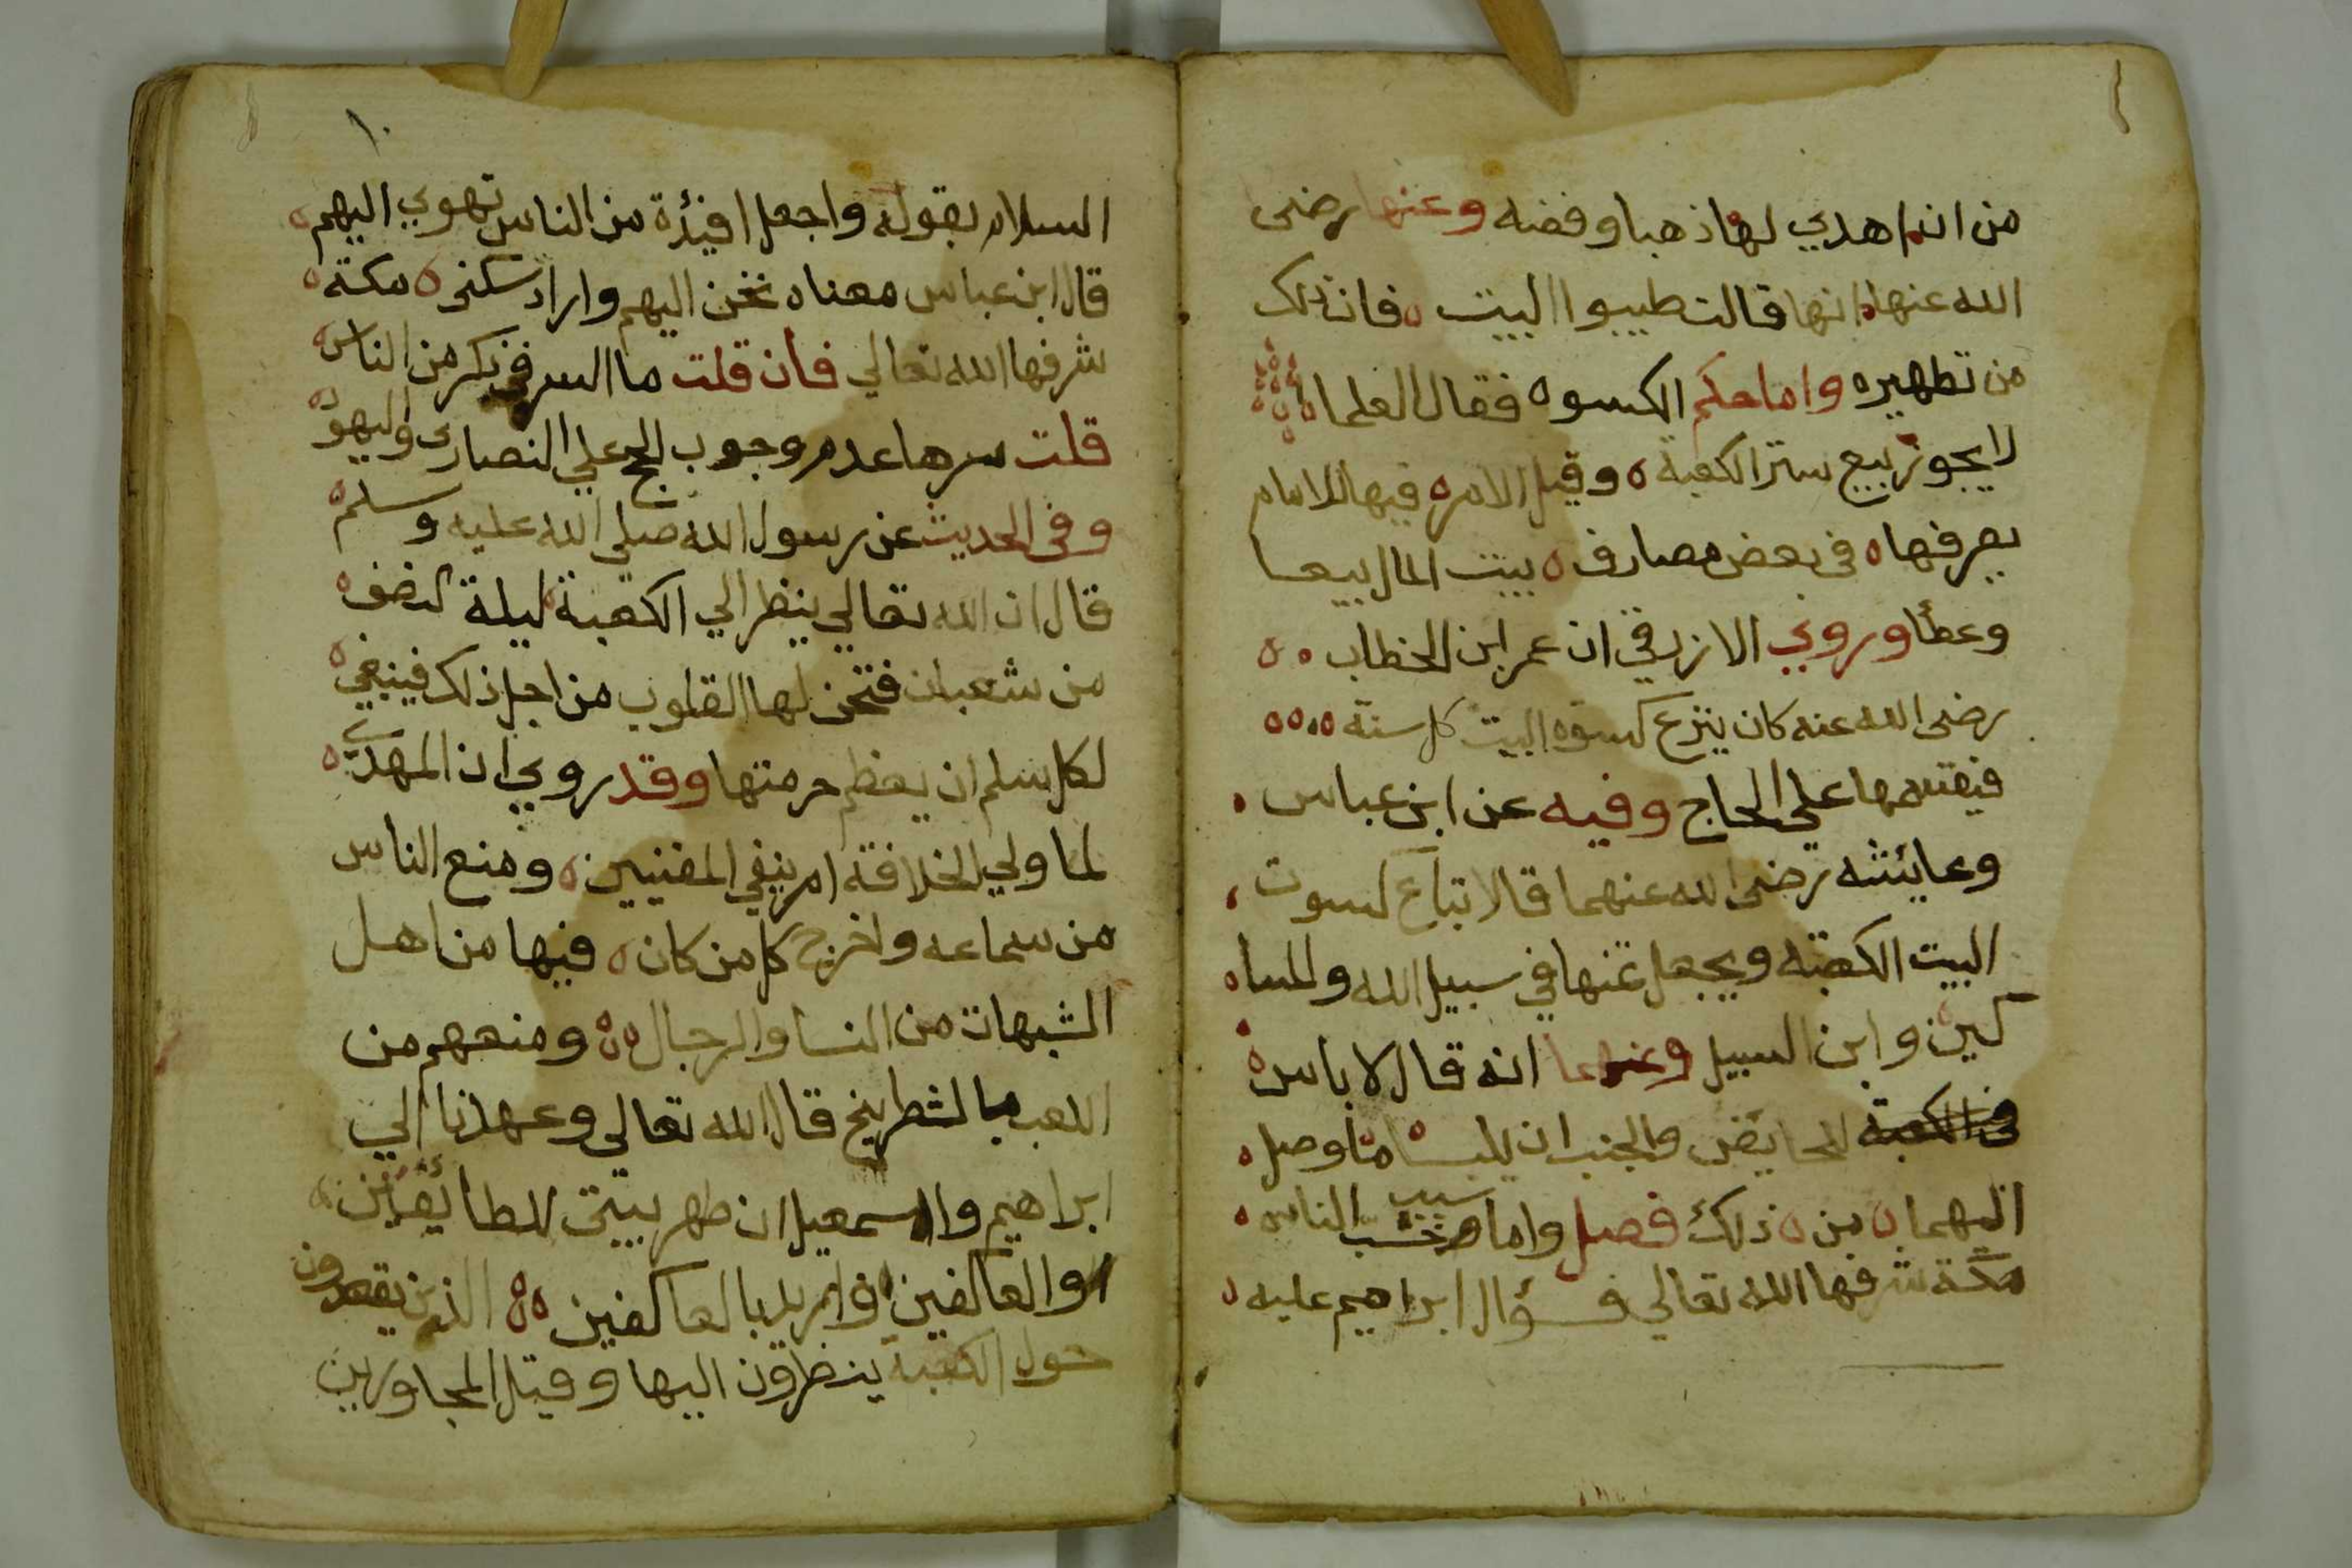 من ان اهدي لها ذهبا وفضه وعنها رضى
الله عنها انها قالت طيبوا البيت فان ذلك
من تطهيره واما حكم الكسوه فقال العلما
لا يجوز بيع ستر الكعبة وقيل الامر فيها للامام
يصرفها في بعض مصارف بيت المال بيعا
وعطا وروي الازرقي ان عمر ابن الخطاب
رضى الله عنه كان ينزع كسوه البيت كل سنة
فيقسمها علي الحاج وفيه عن ابن عباس
وعائشه رضى الله عنهما قالا تباع كسوت
البيت الكعبه ويجعل ثمنها في سبيل الله والمسا
كين وابن السبيل وعنهما انه قال لا باس
للحايض والجنب ان يلبسا ما وصل
اليهما من ذلك فصل واما سبب الناس
مكة شرفها الله تعالي فسؤال ابراهيم عليه
١٠
السلام بقوله واجعل افئدة من الناس تهوي اليهم
قال ابن عباس معناه تحن اليهم واراد سكنى مكة
شرفها الله تعالي فان قلت ما السر في ذكر من الناس
قلت سرها عدم وجوب الحج علي النصارى واليهود
وفى الحديث عن رسول الله صلي الله عليه وسلم
قال ان الله تعالي ينظر الي الكعبة ليلة النصف
من شعبان فتحن لها القلوب من اجل ذلك فينبغي
لكل مسلم ان يعظم حرمتها وقد روي ان المهدي
لما ولي الخلافة امر بنفي المغنيين ومنع الناس
من سماعه واخرج كل من كان فيها من اهل
الشبهات من النسا والرجال ومنعهم من
اللعب بالشطرنج قال الله تعالى وعهدنا الي
ابراهيم واسمعيل ان طهر بيتى للطائفين
والعاكفين بالعاكفين الذين يقعدون
حول الكعبة ينظرون اليها وقيل المجاورين